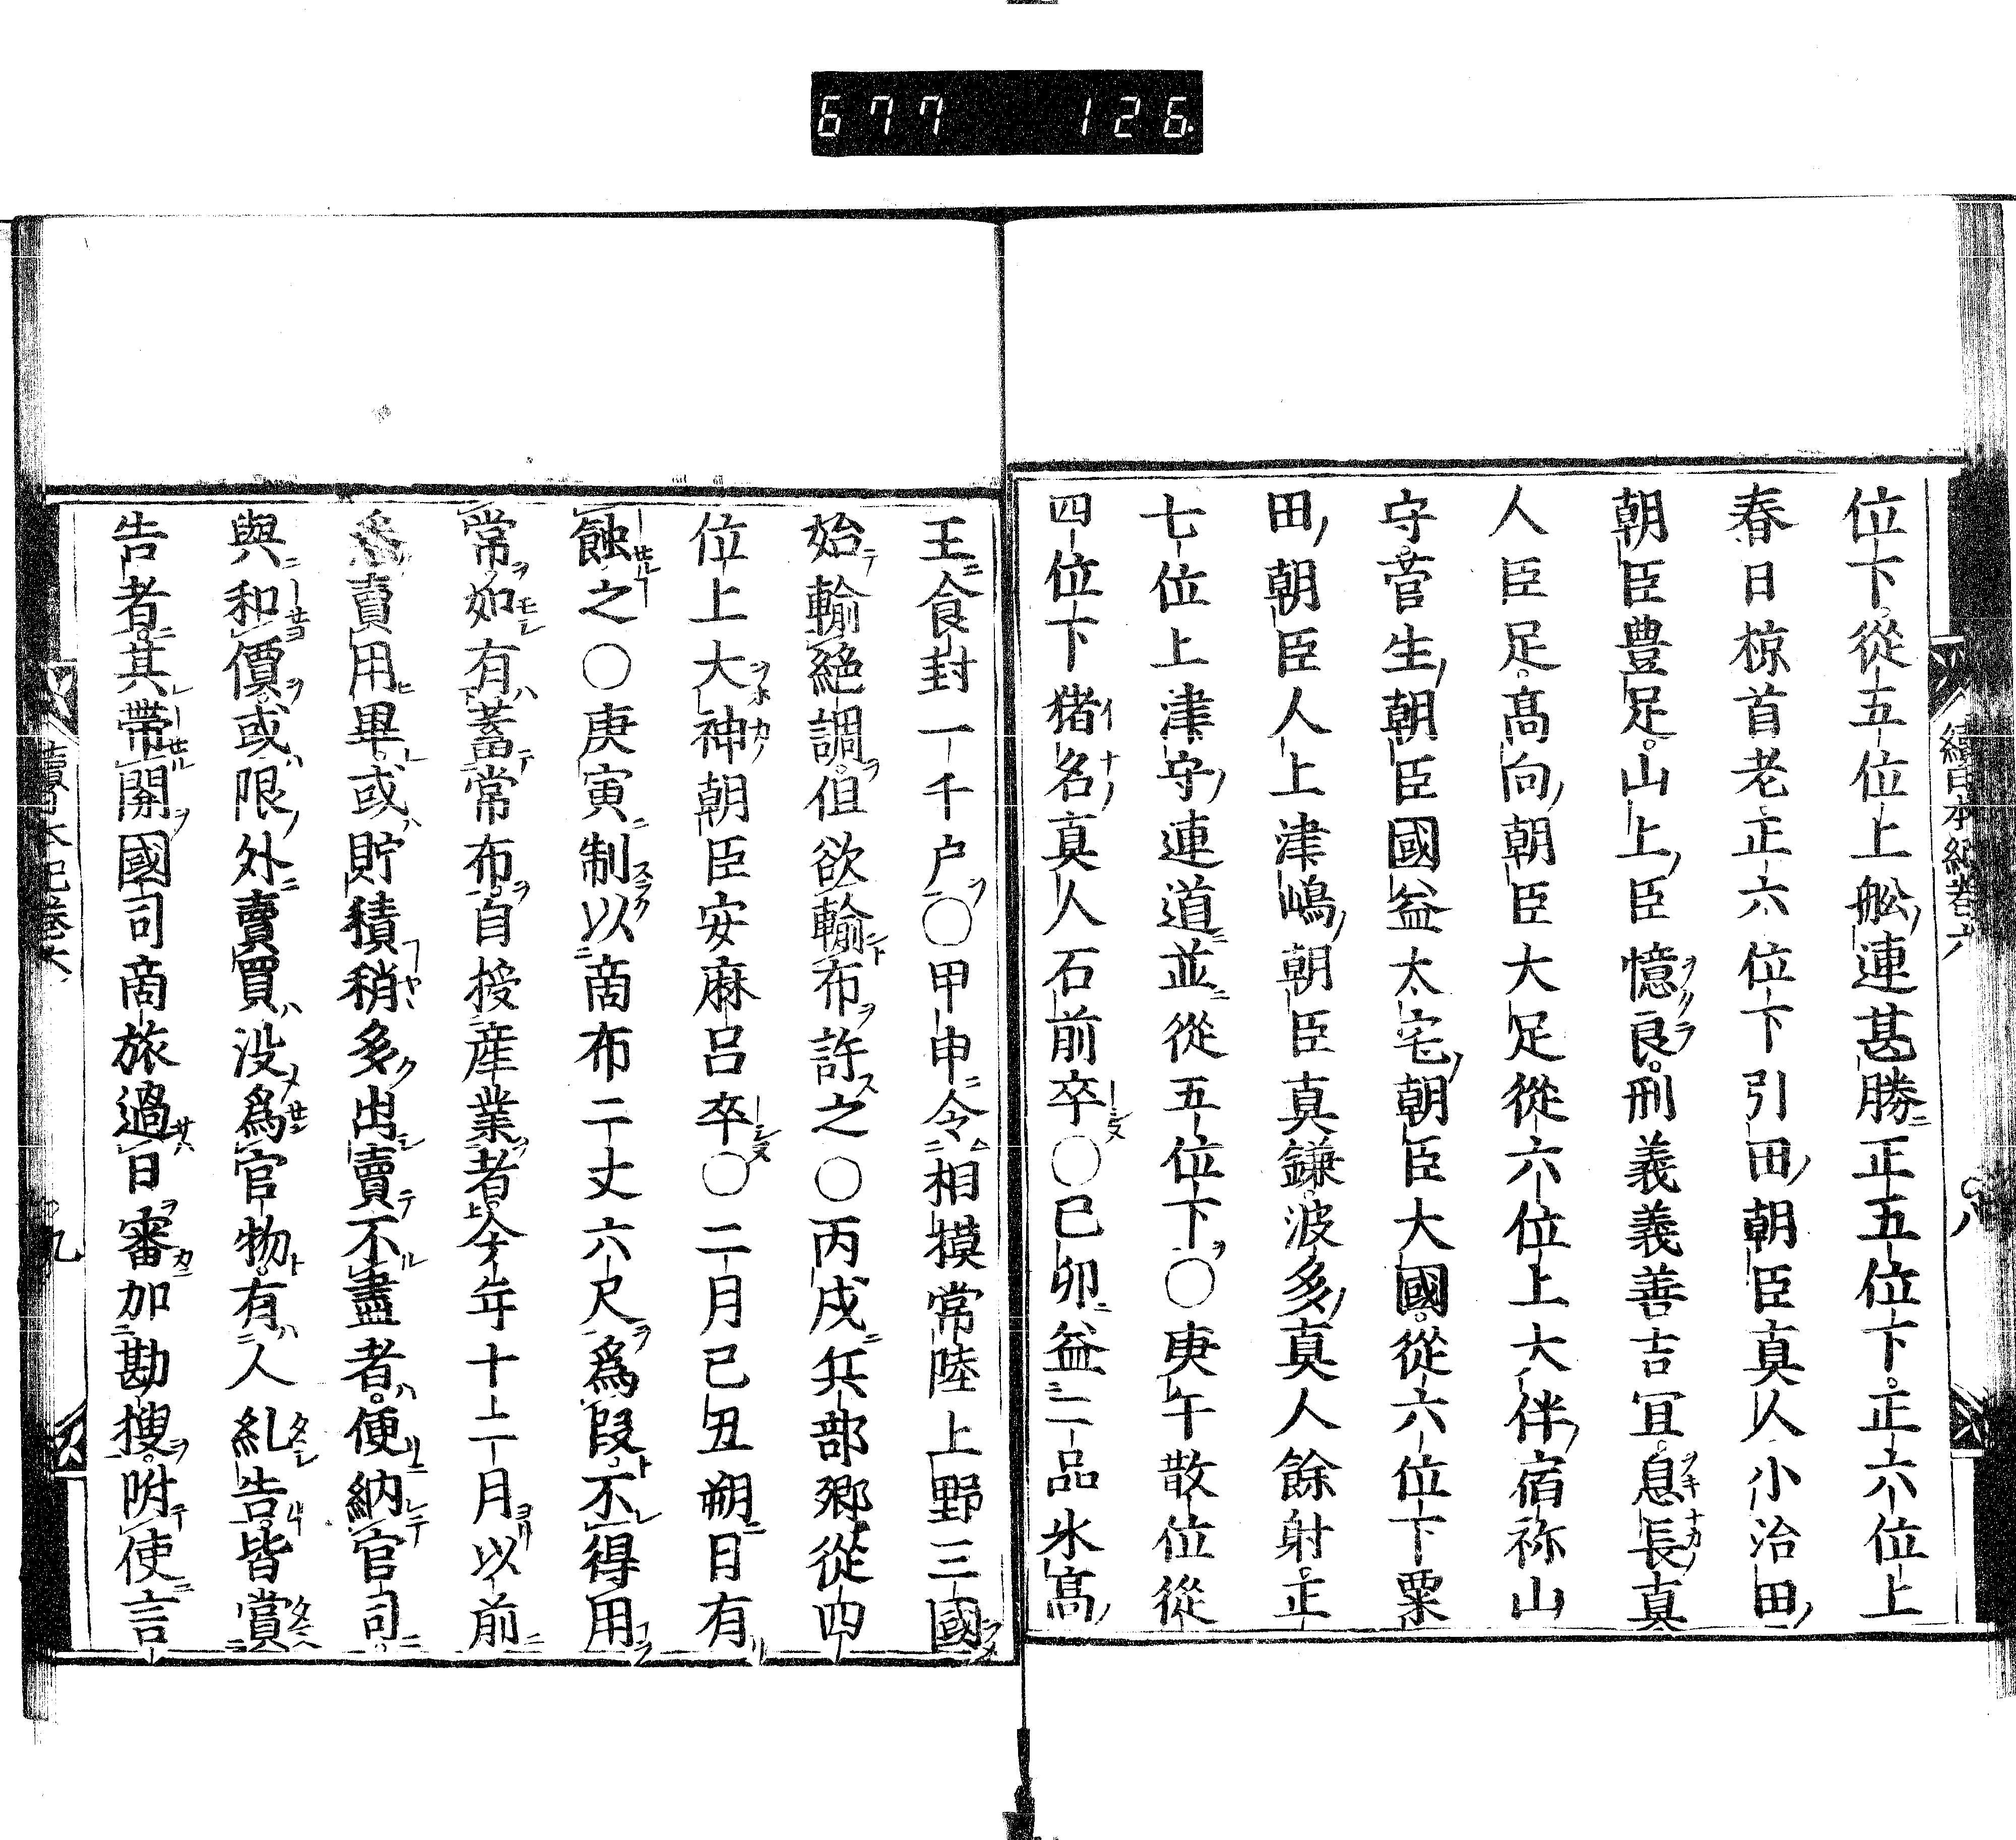 677 126
續日本紀卷六
八
位下從五位上舩連甚勝正五位下正六位上
春日椋首老正六位下引田朝臣真人小治田
朝臣豊足山上臣憶良刑義義善吉冝息長真
人臣足髙向朝臣大足從六位上大伴宿祢山
守菅生朝臣國益太宅朝臣大國從六位下粟
田朝臣人上津嶋朝臣真鎌波多真人餘射正
七位上津守連道並從五位下○庚午散位從
四位下猪名真人石前卒○巳卯益二品氷髙
王食封一千户○甲申令相摸常陸上野三國
始輸絁調但欲輸布許之○丙戌兵部郷從四
位上大神朝臣安麻呂卒○二月已丑朔日有
蝕之○庚寅制以商布二丈六尺爲叚不得用
常如有蓄常布自授産業者今年十二月以前
賣用畢或貯積稍多出賣不盡者便納官司
與和價或限外賣買没爲官物有人糺告皆賞
告者其帶關國司商旅過日審加勘搜附使言
續日本紀卷六
九